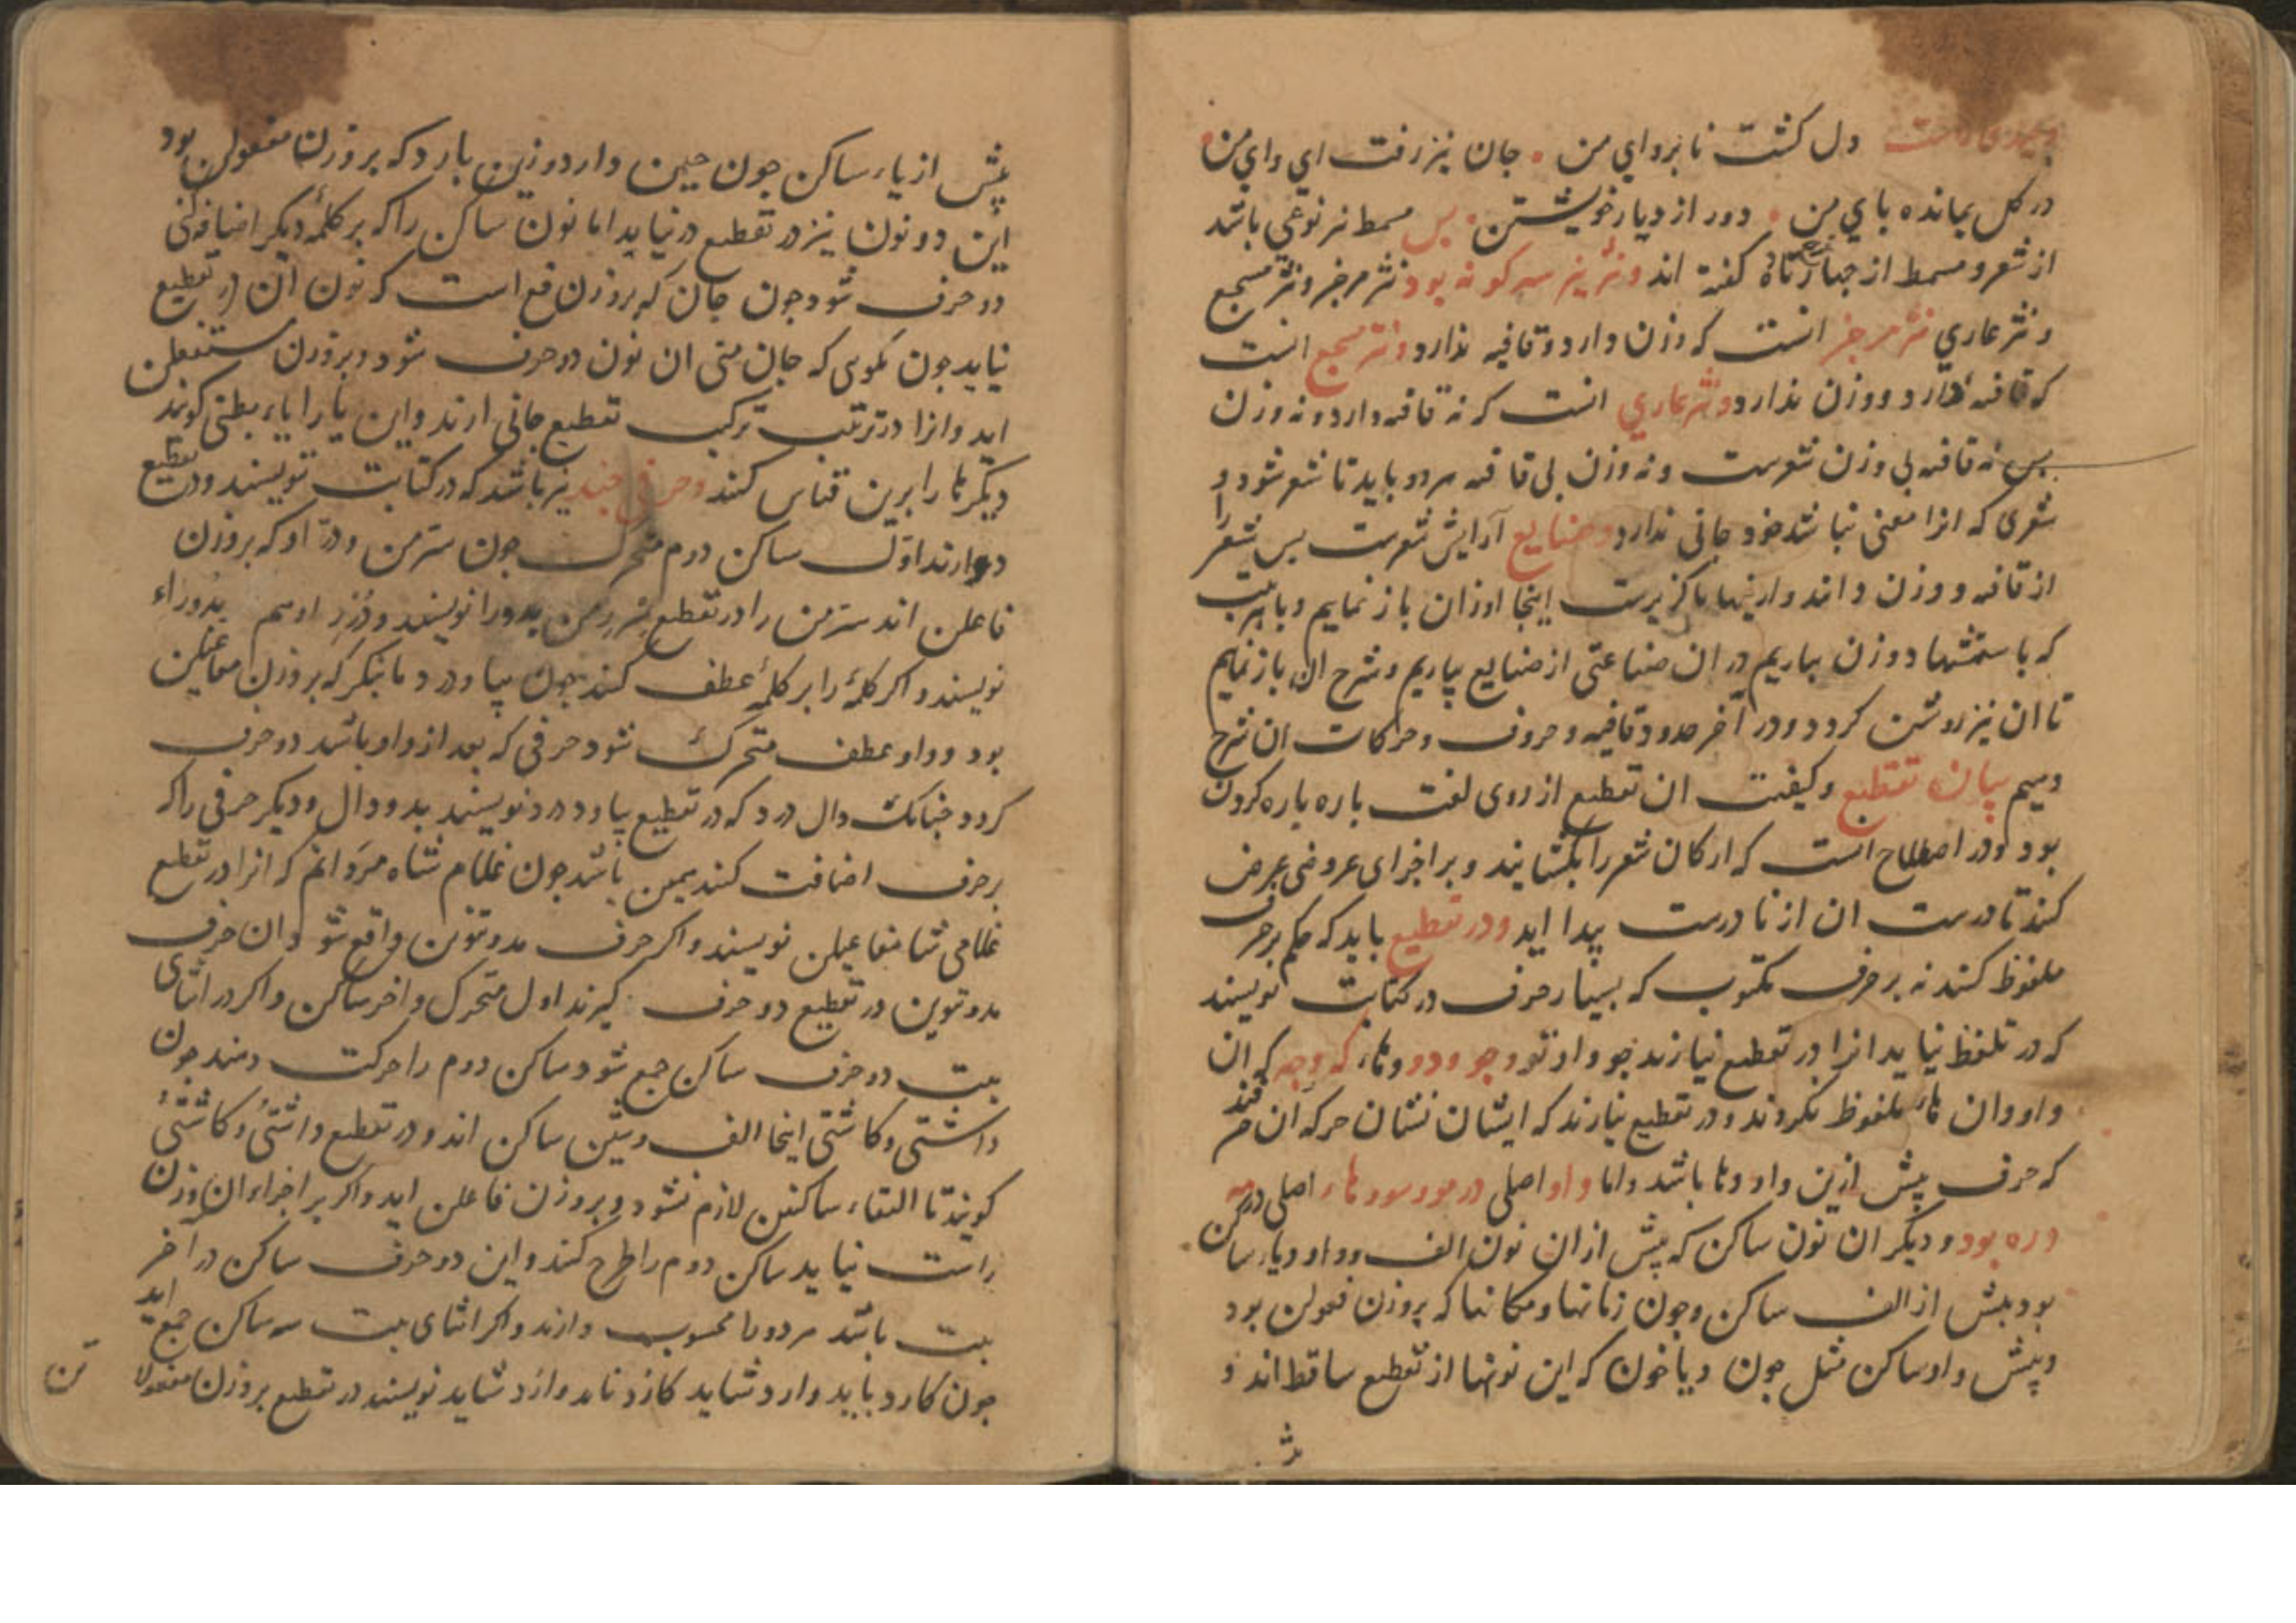 دل گشت نا بروای من • جان نیز رفت ای وای من •
در کل بمانده بای من • دور از دیار خویشتن • بس مسمط نیز نوعی باشد
از شعر و مسمط از جهار تا ده کفته اند و نثر نیز سه کونه بود نثر مرجز و نثر مسجع
و نثر عاری نثر مرجز انست که وزن دارد و قافیه ندارد و نثر مسجع انست
که قافیه دارد و وزن ندارد و نثر عاری انست که نه قافیه دارد و نه وزن
بس نه قافیه بی وزن شعرست و نه وزن بی قافیه هر دو باید تا شعر شود و
شعری که انرا معنی نباشد خود جانی ندارد و صنایع آرایش شعرست بس شعر را
از قافیه و وزن و اینها ناکزیرست اینجا اوزان باز نماییم و با هر بیت
که باستشهاد وزن بیاریم در ان صناعتی از صنایع بیاریم و شرح ان باز نماییم
تا ان نیز روشن کردد و در آخر حدود قافیه و حروف و حرکات ان شرح
دهیم بیان تقطیع و کیفیت ان تقطیع از روی لغت باره باره کردن
بود و در اصطلاح انست که ارکان شعر را بکشایند و بر اجزای عروضی عرض
کنند تا درست ان از نا درست پیدا اید و در تقطیع باید که حکم بر حرف
ملفوظ کنند نه بر حرف مکتوب که بسیار حرف در کتابت نویسند
که در تلفظ نیاید انرا در تقطیع نیارند جو واو تو و جو و دو و هاء که و جه که ان
واو و ان هاء ملفوظ نکردند و در تقطیع نیارند که ایشان نشان حرکه ان حرفند
که حرف پیش ازین واو و ها باشد و اما واو اصلی در مور سور و هاء اصلی در مه
و ره بود و دیکر ان نون ساکن که پیش از ان نون الف و واو و یاء ساکن
بود پیش از الف ساکن و جون زمانها و مکانها که بروزن فعولن بود
و پیش واو ساکن مثل جون و یا خون که این نونها از تقطیع ساقط اند و
پیش از یاء ساکن جون جین دارد و زین بارد که بروزن مفعولن بود
این دو نون نیز در تقطیع در نیاید اما نون ساکن را که بر کلمهٔ دیکر اضافه کنی
دو حرف شود جون جان که بروزن فع است که نون ان در تقطیع
نیاید جون بکویی که جان منی ان نون دو حرف شود و بروزن مستفعلن
اید و انرا در ترتیب ترکیب تقطیع جانی ارند و این یا را یاء بطنی کویند
دیکرها را برین قیاس کنند و حرفی جند نیز باشد که در کتابت نویسند و در تقطیع
دو ارند اول ساکن دوم متحرک جون سر من و در او که بروزن
فاعلن اند سر من را در تقطیع سررمن بدو را نویسند و درر او هم بدو راء
نویسند و اکر کلمهٔ را بر کلمهٔ عطف کنند جون بیا و درد ما بنکر که بروزن مفاعیلن
بود و واو عطف متحرک شود حرفی که بعد از واو باشد دو حرف
کردد جنانک دال درد که در تقطیع بیا وددرد نویسند بدو دال و دیکر حرفی را که
بر حرف اضافت کنند همین باشد جون غلام شاه مردانم که انرا در تقطیع
غلامی شا مفاعیلن نویسند و اکر حرف مد و تنوین واقع شود ان حرف
مد و تنوین در تقطیع دو حرف کیرند اول متحرک و اخر ساکن و اکر در اثنای
بیت دو حرف ساکن جمع شود ساکن دوم را حرکت دهند جون
داشتی و کاشتی اینجا الف و شین ساکن اند و در تقطیع داشتئ و کاشتئ
کویند تا التقاء ساکنین لازم نشود و بروزن فاعلن اید و اکر بر اجزاء ان وزن
راست نیاید ساکن دوم را طرح کنند و این دو حرف ساکن در آخر
بیت باشد هر دو را محسوب دارند و اکر اثنای بیت سه ساکن جمع اید
جون کارد باید وارد شاید کازد ناید وازد شاید نویسند در تقطیع بروزن مفعولا
تن